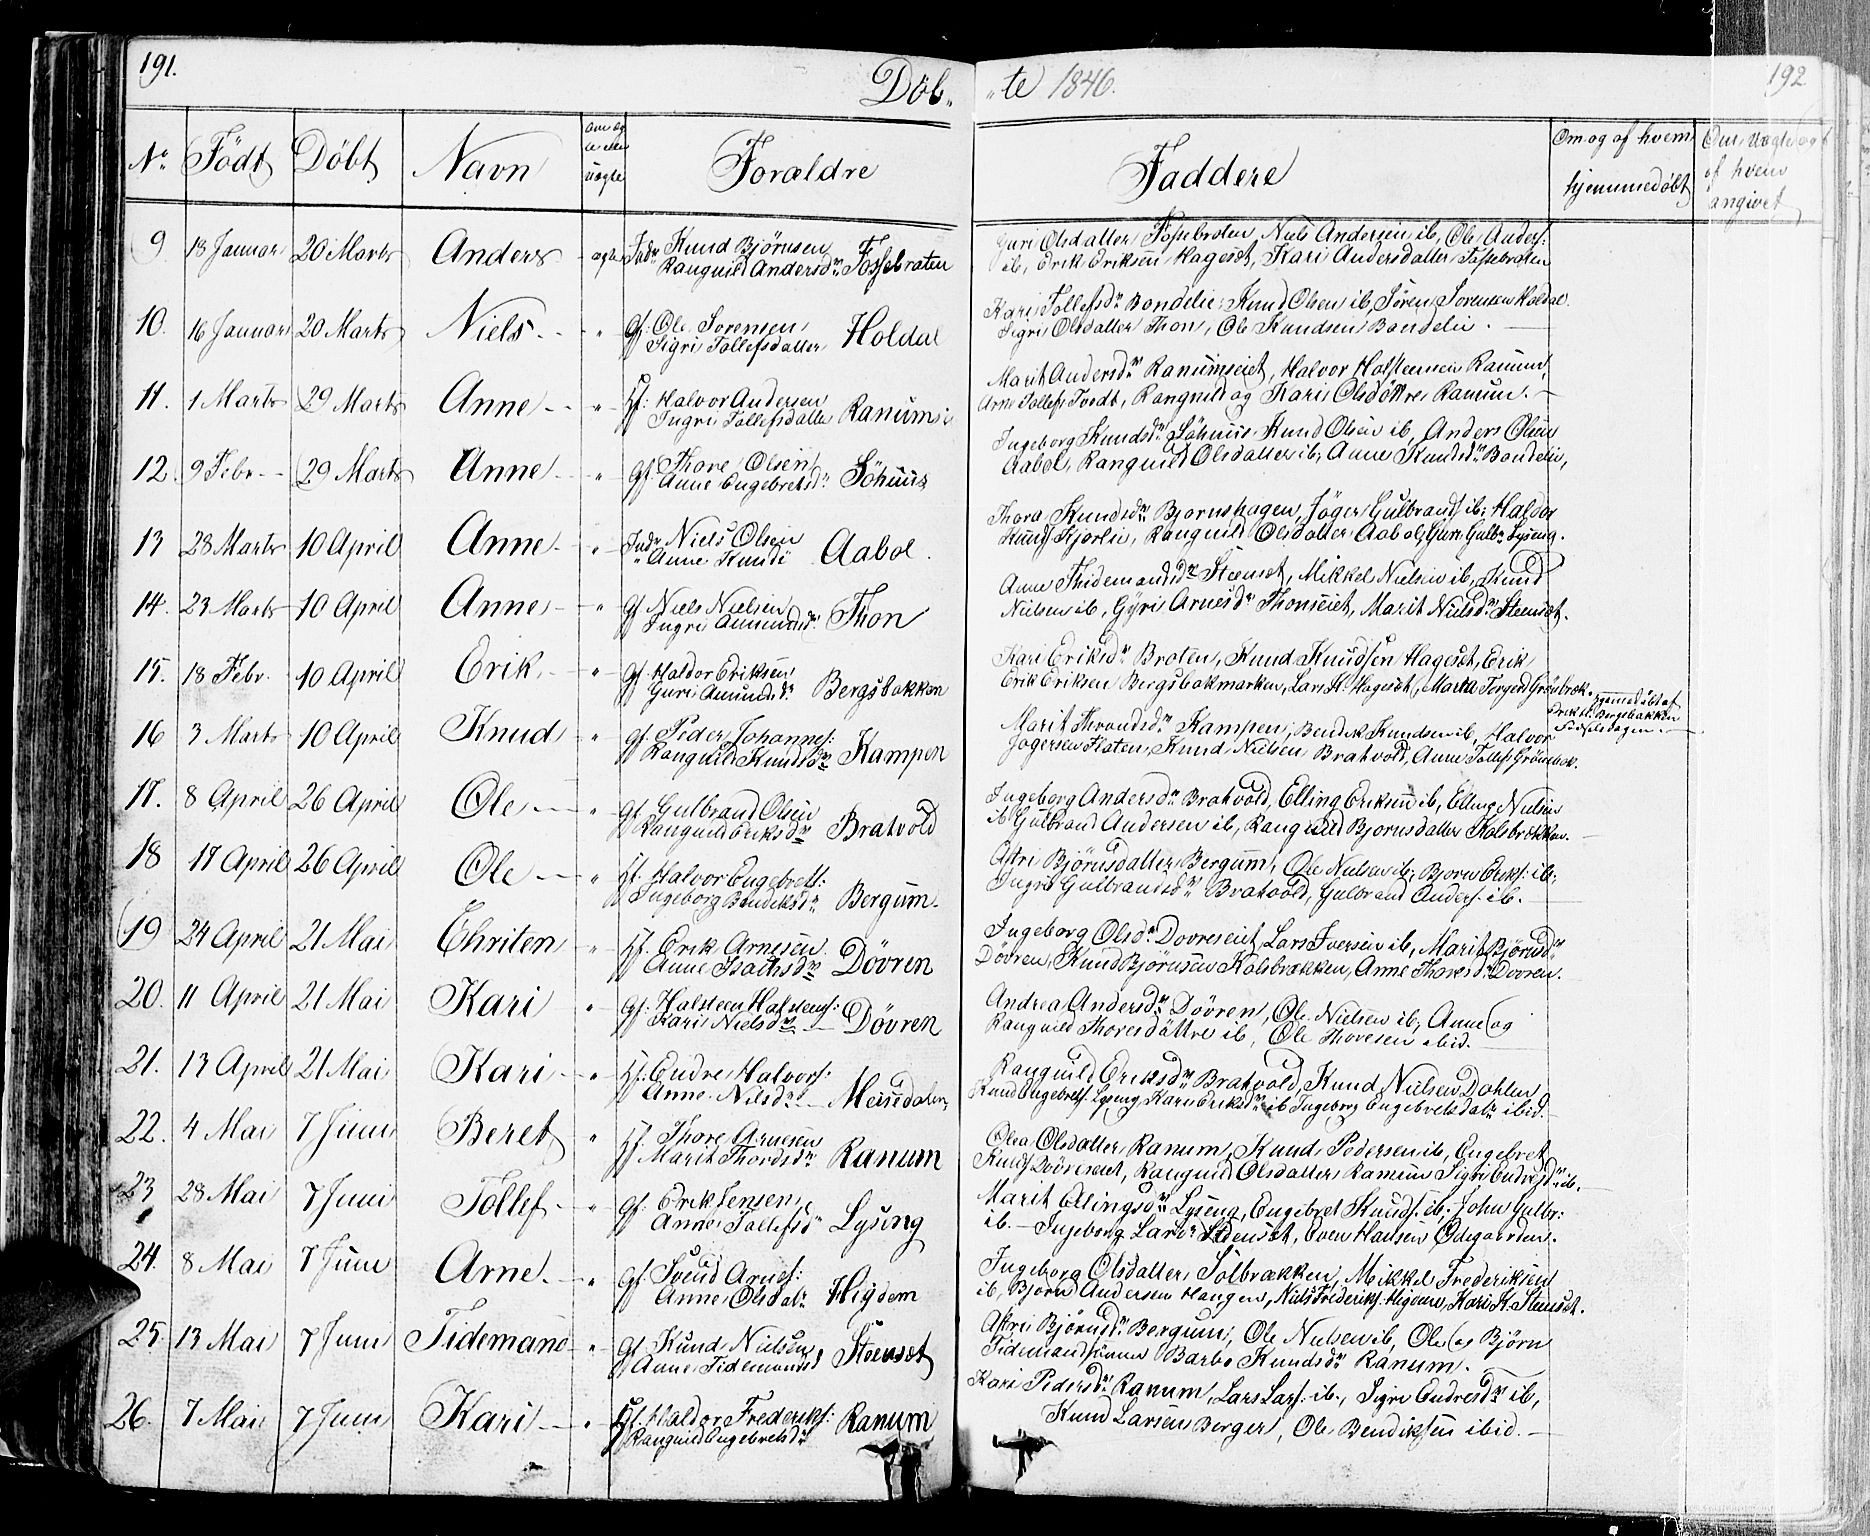 191.
Döb-
-te 1846.
192
No Födt Döbt Navn Forældre Faddere
Om og af hvem hjemmedöbt
af hvem angivet
9 18 Januar 20 Marts Anders ægte Indr Knud Björnsen
Rangnild Andersdr Fossebraten
Guri Olsdatter Fossebroten, Niels Andersen ib, Ole Anders:
ib, Erik Eriksen Hageset, Kari Andersdatter Fossebroten
10. 16 Januar 20 Marts Niels - " Gf. Ole Sorensen
Sigri Tollefsdatter Holdal
Kari Tollefsdr Bondelie, Knud Olsen ib, Sören Sorensen Holdal
Sigri Olsdatter Thon, Ole Knudsen Bondelie. -
11. 1 Marts 29 Marts Anne - " Hf: Halvor Andersen
Ingri Tollefsdatter Ranum
Marit Andersdr Ranumseiet, Halvor Halsteinsen Ranum,
Arne Tollefs Tvedt, Rangnild og Kari Olsdöttre Ranum. -
12. 9 Febr - 29 Marts Anne - " Gf. Thore Olsen
Anne Engebretsdr Söhuus
Ingeborg Knudsdr Söhuus Knud Olsen ib, Anders Olsen
Aabol, Rangnild Olsdatter ib, Anne Knudsdr Bondelie,
13 28 Marts 10 April Anne - " Indr Niels Olsen
" Anne Knuds Aabol.
Thora Knudsdr Bjornshagen, Jöger Gulbrands ib, Haldor
Knuds Kjorlie, Rangnild Olsdatter Aabol, Guri Gulbr Lyseng.
14. 23 Marts 10 April Anne - " Gf Niels Nielsen
Ingri Amundsdr Thon
Anne Thidemandsdr Steenset, Mikkel Nielsen ib, Knud
Nielsen ib, Gyri Arnesdr Thonseiet, Marit Nielsdr Steenset.
15. 18 Febr. 10 April Erik. - " Gf. Haldor Eriksen
Guri Amundsdr Bergsbakken
Kari Eriksdr Broten, Knud Knudsen Hageset, Erik
Erik Eriksen Bergsbakmarken, Lars K. Hageset, Marta Torgersd Grönbrek.
hjemmedöbt af
Erik H. Bergsbakken
Födselsdagen. -
16 3 Marts 10 April Knud " Gf. Peder Johannes:
Rangnild Knudsdr Kampen
Marit Throndsdr Kampen, Bendik Knudsen ib, Halvor
Jogersen Flaten, Knud Nielsen Bratvold, Anne Tollefs Grönbrek.
17. 8 April 26 April Ole - " Gf. Gulbrand Olsen
Rangnild Eriksdr Bratvold
Ingeborg Andersdr Bratvold, Elling Eriksen ib, Elling Nielsen
ib Gulbrand Andersen ib, Rangnild Bjornsdatter Kolsbrekken. -
18 17 April 26 April Ole - " Hf. Halvor Engebrets:
Ingeborg Bendiksdr Bergum.
Astri Björnsdatter Bergum, Ole Nielsen ib, Bjorn Eriks: ib,
Ingri Gulbrandsdr Bratvold, Gulbrand Anders. ib. -
19 24 April 21 Mai Christen " Hf. Erik Arnesen
Anne Isachsdr Dövren
Ingeborg Olsdr Dovreseiet, Lars Iversen ib, Marit Björnsdr
Dövren, Knud Björnsen Kolsbrækken, Anne Thoresdr Dovren.
20. 11 April 21 Mai Kari " Gf. Halsteen Halsteens:
Kari Nielsdr - Dövren
Andrea Andersdr Dövren, Ole Nielsen ib, Anne og
Rangnild Thoresdöttre ib, Ole Thoresen ibid. -
21. 13 April 21 Mai Kari - " Hf. Endre Halvors:
Anne Nilsdr -
Rangnild Eriksdr Bratvold, Knud Nielsen Dahlen
Knud Engebrets. Lyseng, Kari Eriksdr ib Ingeborg Engebretsdatr ibid. -
22. 4 Mai 7 Juni Beret " Hf. Thore Arnesen
Marit Thordsdr Ranum
Olea Olsdatter Ranum, Knud Pedersen ib, Engebret
Knuds Dövreseiet, Rangnild Olsdatter Ranum Sigri Endresdr ib. -
23 28 Mai 7 Juni Tollef - " Gf. Erik Jensen
Anne Tollefsdr Lyseng
Marit Ellingsdr Lyseng, Engebret Knuds. ib, John Gulbr:
ib. - Ingeborg Larsdr Steenset, Even Hansen Ödegaarden.
24. 8 Mai 7 Juni Arne. - " Gf. Svend Arnes:
Anne Olsdatr Högdem
Ingeborg Olsdatter Solbrækken, Mikkel Frederiksen
ib, Bjorn Andersen Haugen, Niels Frederiks. Högdem, Kari K. Steenset.
25. 13 Mai 7 Juni Tidemand " Gf. Knud Nielsen
Anne Tidemandsd Steenset
Astri Björnsdr Bergum, Ole Nielsen ib, Ole og Björn
Tidemandsönner Barbo Knudsdr Ranum.
26. 7 Mai 7 Juni Kari - " Hf. Haldor Frederiks:
Rangnild Engebretsdr Ranum
Kari Pedersdr Ranum, Lars Lars: ib., Sigri Endresdr ib,
Knud Larsen Berger, Ole Bendiksen ibid. -